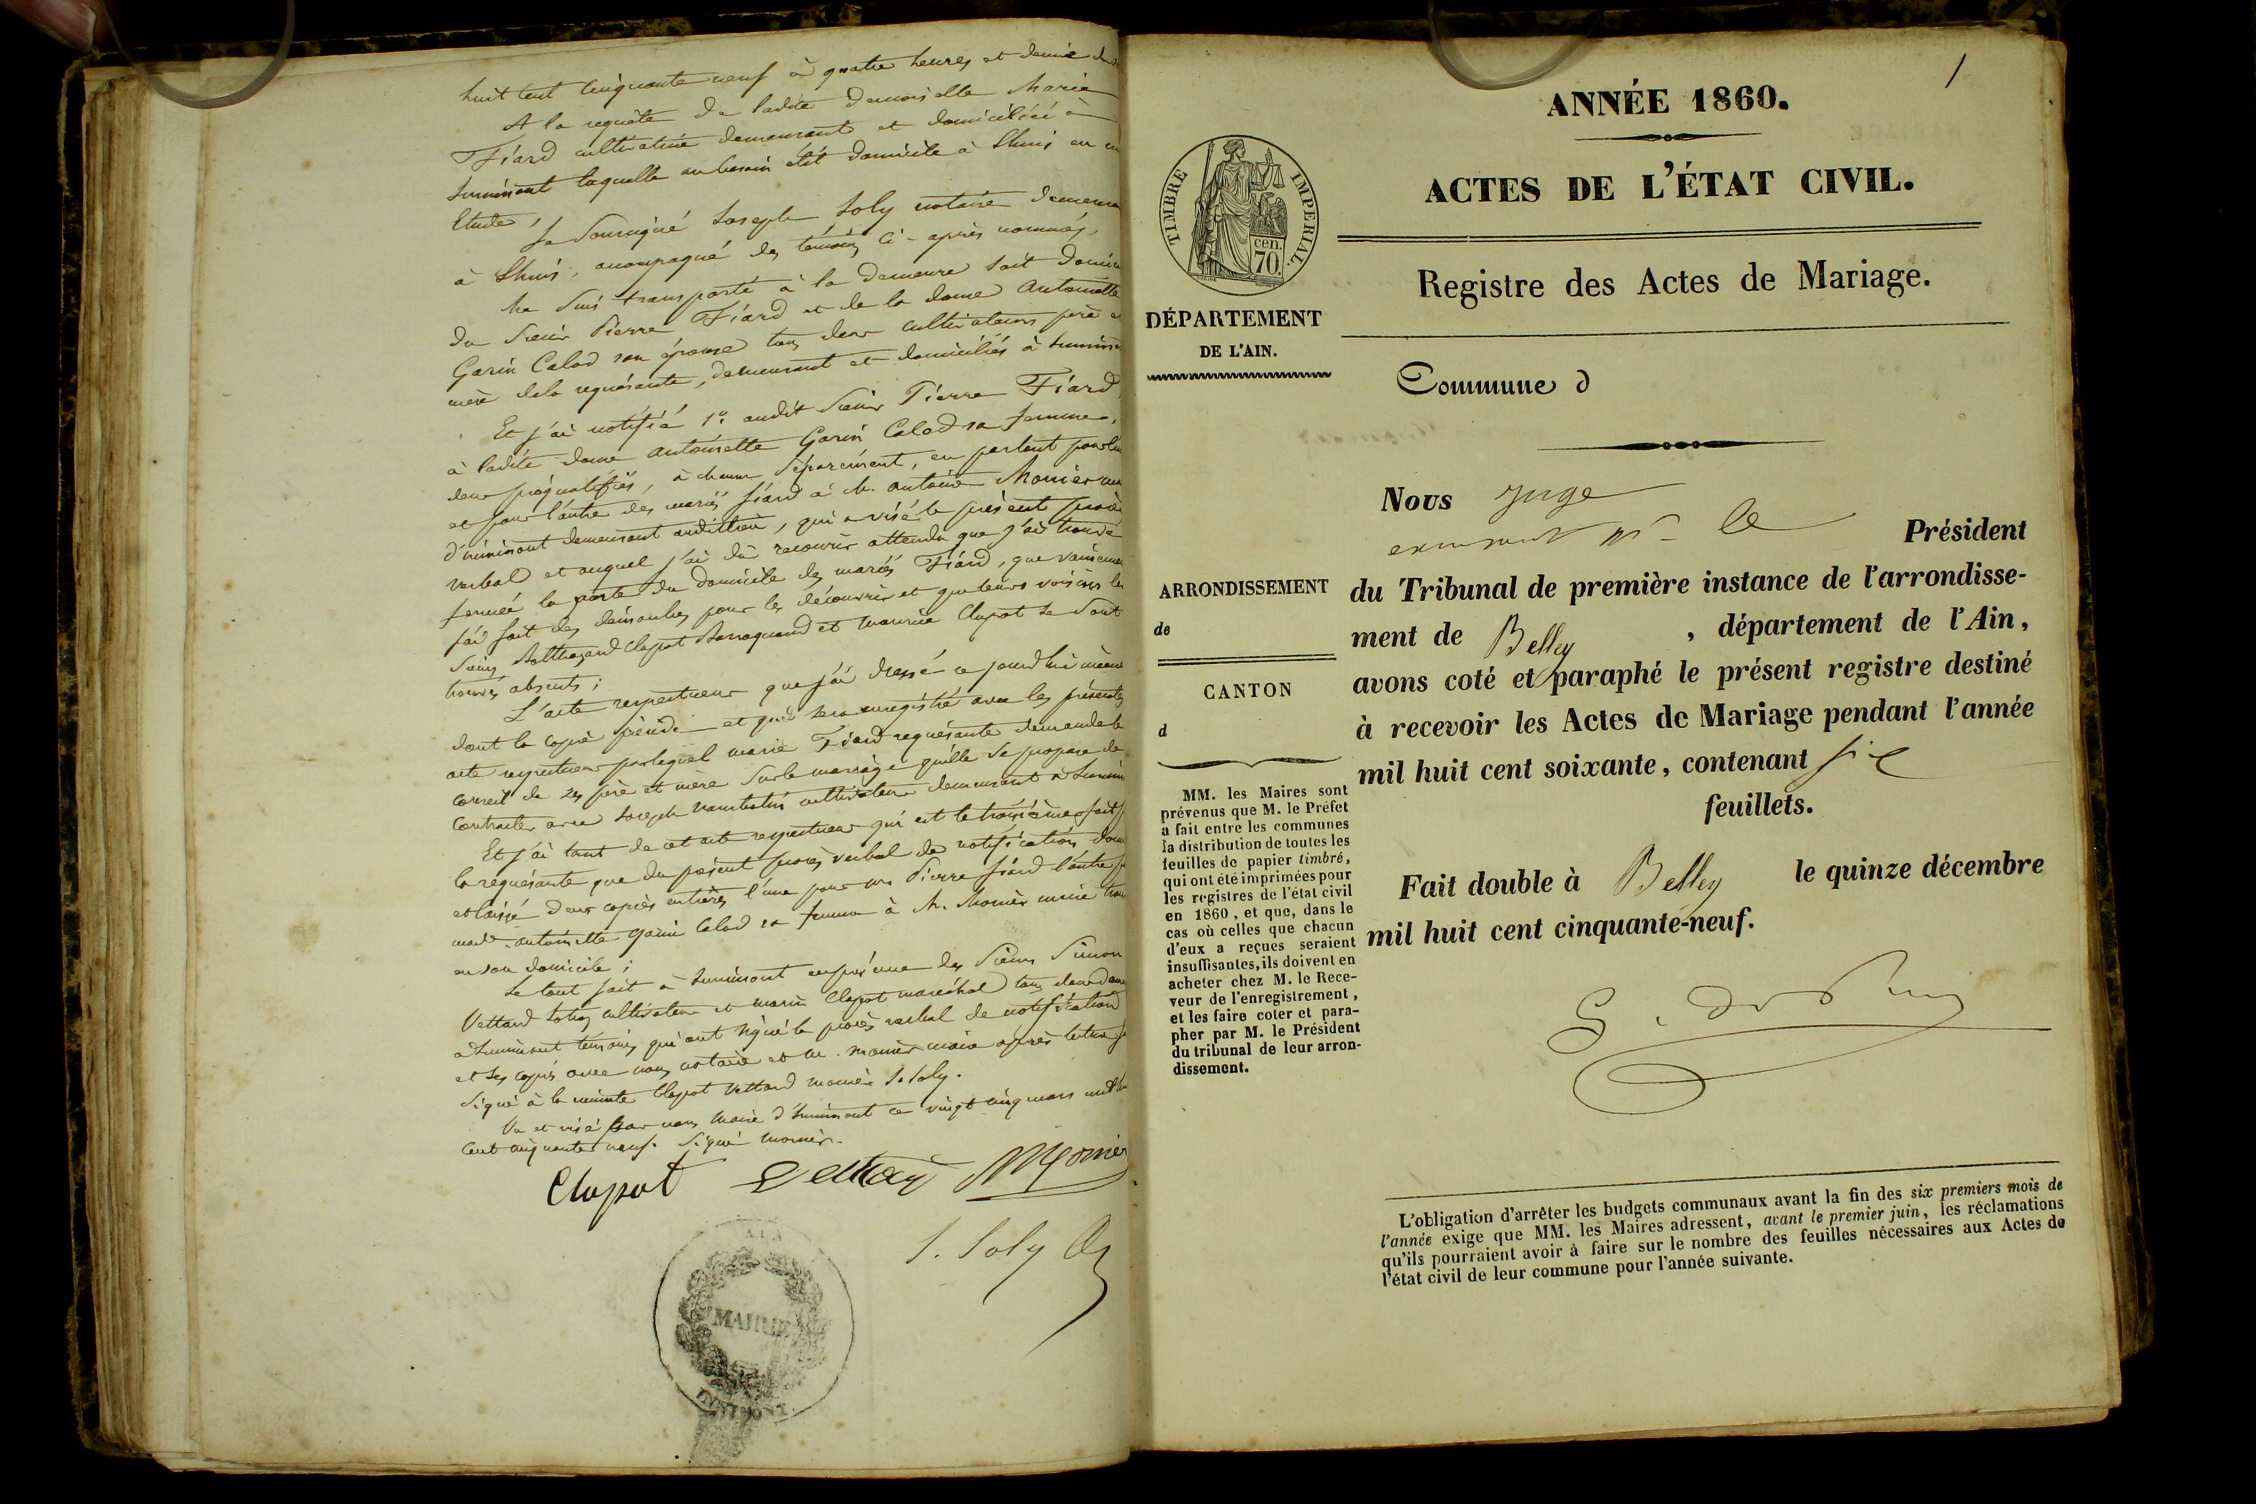 huit cent cinquante neuf à quatre heures et demie du
A la requête de ladite demoiselle Marie
Fiard cultivatrice demeurant et domiciliée à
laquelle au besoin élit domicile à Lhuis en
Etude,
Je soussigné Joseph Soly notaire
à Lhuis, accompagné des témoins ci-après nommés,
Me suis transporté à la demeure
du sieur Pierre Fiard et de la dame Antoinette
Garin Calod son épouse tous deux cultivateurs père
mère de la requérante, demeurant et domiciliés à
Et j'ai notifié 1° audit sieur Pierre Fiard
à ladite dame Antoinette Garin Calod sa femme,
deux préqualifiés, à chacun séparément, en parlant pour
et pour l'autre des mariés fiard à M. antoine Monier
d'inimont demeurant audit lieu, qui a visé le présent procès
verbal et auquel j'ai dû recourir attendu que j'ai trouvé
fermée la porte du domicile des mariés Fiard, que
j'ai fait des démarches pour les découvrir et que leurs voisins les
Sieurs Balthazard Clapot et Clapot se sont
trouvés absents;
L'acte respectueux que j'ai dressé ce jourd'hui
dont la copie et qui sera enregistré avec les présentes
acte respectueux par lequel marie Fiard requérante demande le
conseil de ses père et mère sur le mariage qu'elle se propose de
contracter avec Joseph cultivateur demeurant à
Et j'ai tant de cet acte respectueux qui est le troisième fait
la requérante que du présent procès verbal de notification
et laissé deux copies entières l'une pour Pierre fiard l'autre
antoinette garin Calod sa femme à M. Monier maire
en son domicile;
Le tout fait à en présence des Sieurs Simon
Vettard cultivateur et Clapot maréchal tous deux
témoins qui ont signé le procès verbal de notification
et les copies avec nous notaire et M. monier maire après lecture
Signé à la minute Clapot Vettard monier J. Soly.
Vu et visé par nous Maire d'Inimont ce vingt cinq mars mil
cent cinquante neuf. Signé monier.
Clapot Vettard Monier
J. Soly
AIN
MAIRIE
INNIMONT
1
ANNÉE 1860.
ACTES DE L'ÉTAT CIVIL.
TIMBRE IMPERIAL.
cen.
70.
Registre des Actes de Mariage.
DÉPARTEMENT
DE L'AIN.
Commune d
Nous juge
le Président
ARRONDISSEMENT
de
du Tribunal de première instance de l'arrondisse-
ment de Belley , département de l'Ain,
avons coté et paraphé le présent registre destiné
à recevoir les Actes de Mariage pendant l'année
mil huit cent soixante, contenant six
feuillets.
CANTON
d
MM. les Maires sont
prévenus que M. le Préfet
a fait entre les communes
la distribution de toutes les
feuilles de papier timbré,
qui ont été imprimées pour
les registres de l'état civil
en 1860, et que, dans le
cas où celles que chacun
d'eux a reçues seraient
insuffisantes, ils doivent en
acheter chez M. le Rece-
veur de l'enregistrement,
et les faire coter et para-
pher par M. le Président
du tribunal de leur arron-
dissement.
Fait double à Belley le quinze décembre
mil huit cent cinquante-neuf.
L'obligation d'arrêter les budgets communaux avant la fin des six premiers mois de
l'année exige que MM. les Maires adressent, avant le premier juin, les réclamations
qu'ils pourraient avoir à faire sur le nombre des feuilles nécessaires aux Actes de
l'état civil de leur commune pour l'année suivante.